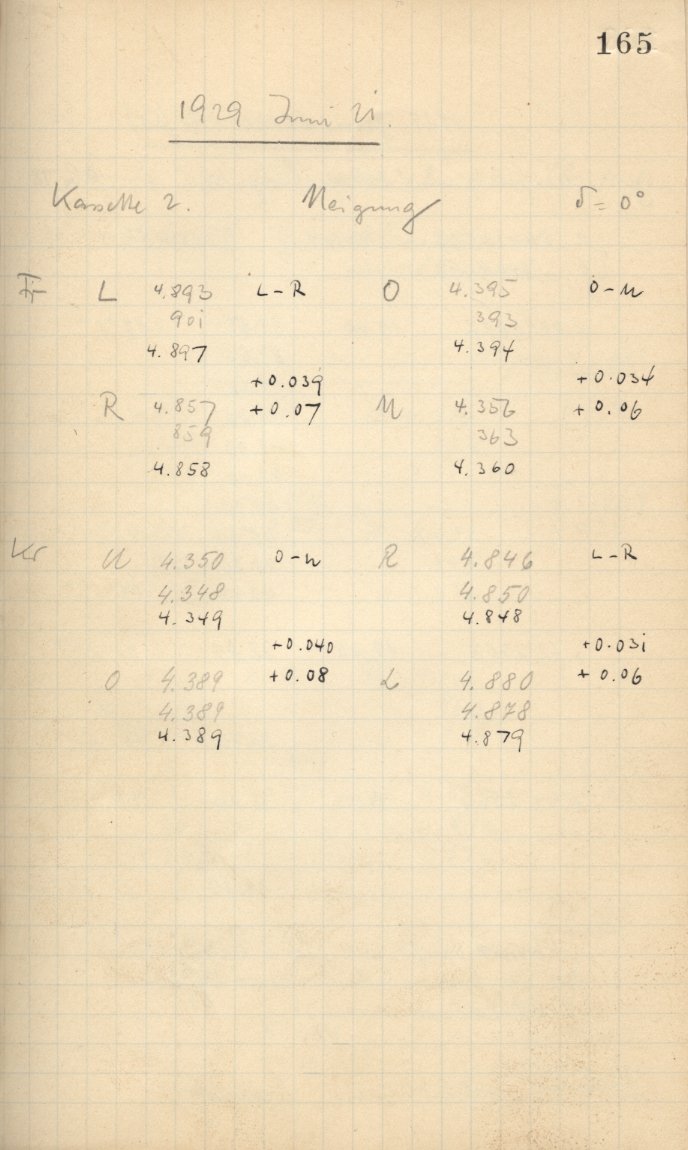 165
1929 Juni 21.
Kassette 2. Neigung δ = 0°
L 4.893 L-R O 4.395 O-U
901 393
4.897 4.394
+0.039 +0.034
R 4.857 +0.07 U 4.356 +0.06
859 363
4.858 4.360
Kr U 4.350 O-U R 4.846 L-R
4.348 4.850
4.349 4.848
+0.040 +0.031
O 4.389 +0.08 L 4.880 +0.06
4.389 4.878
4.389 4.879